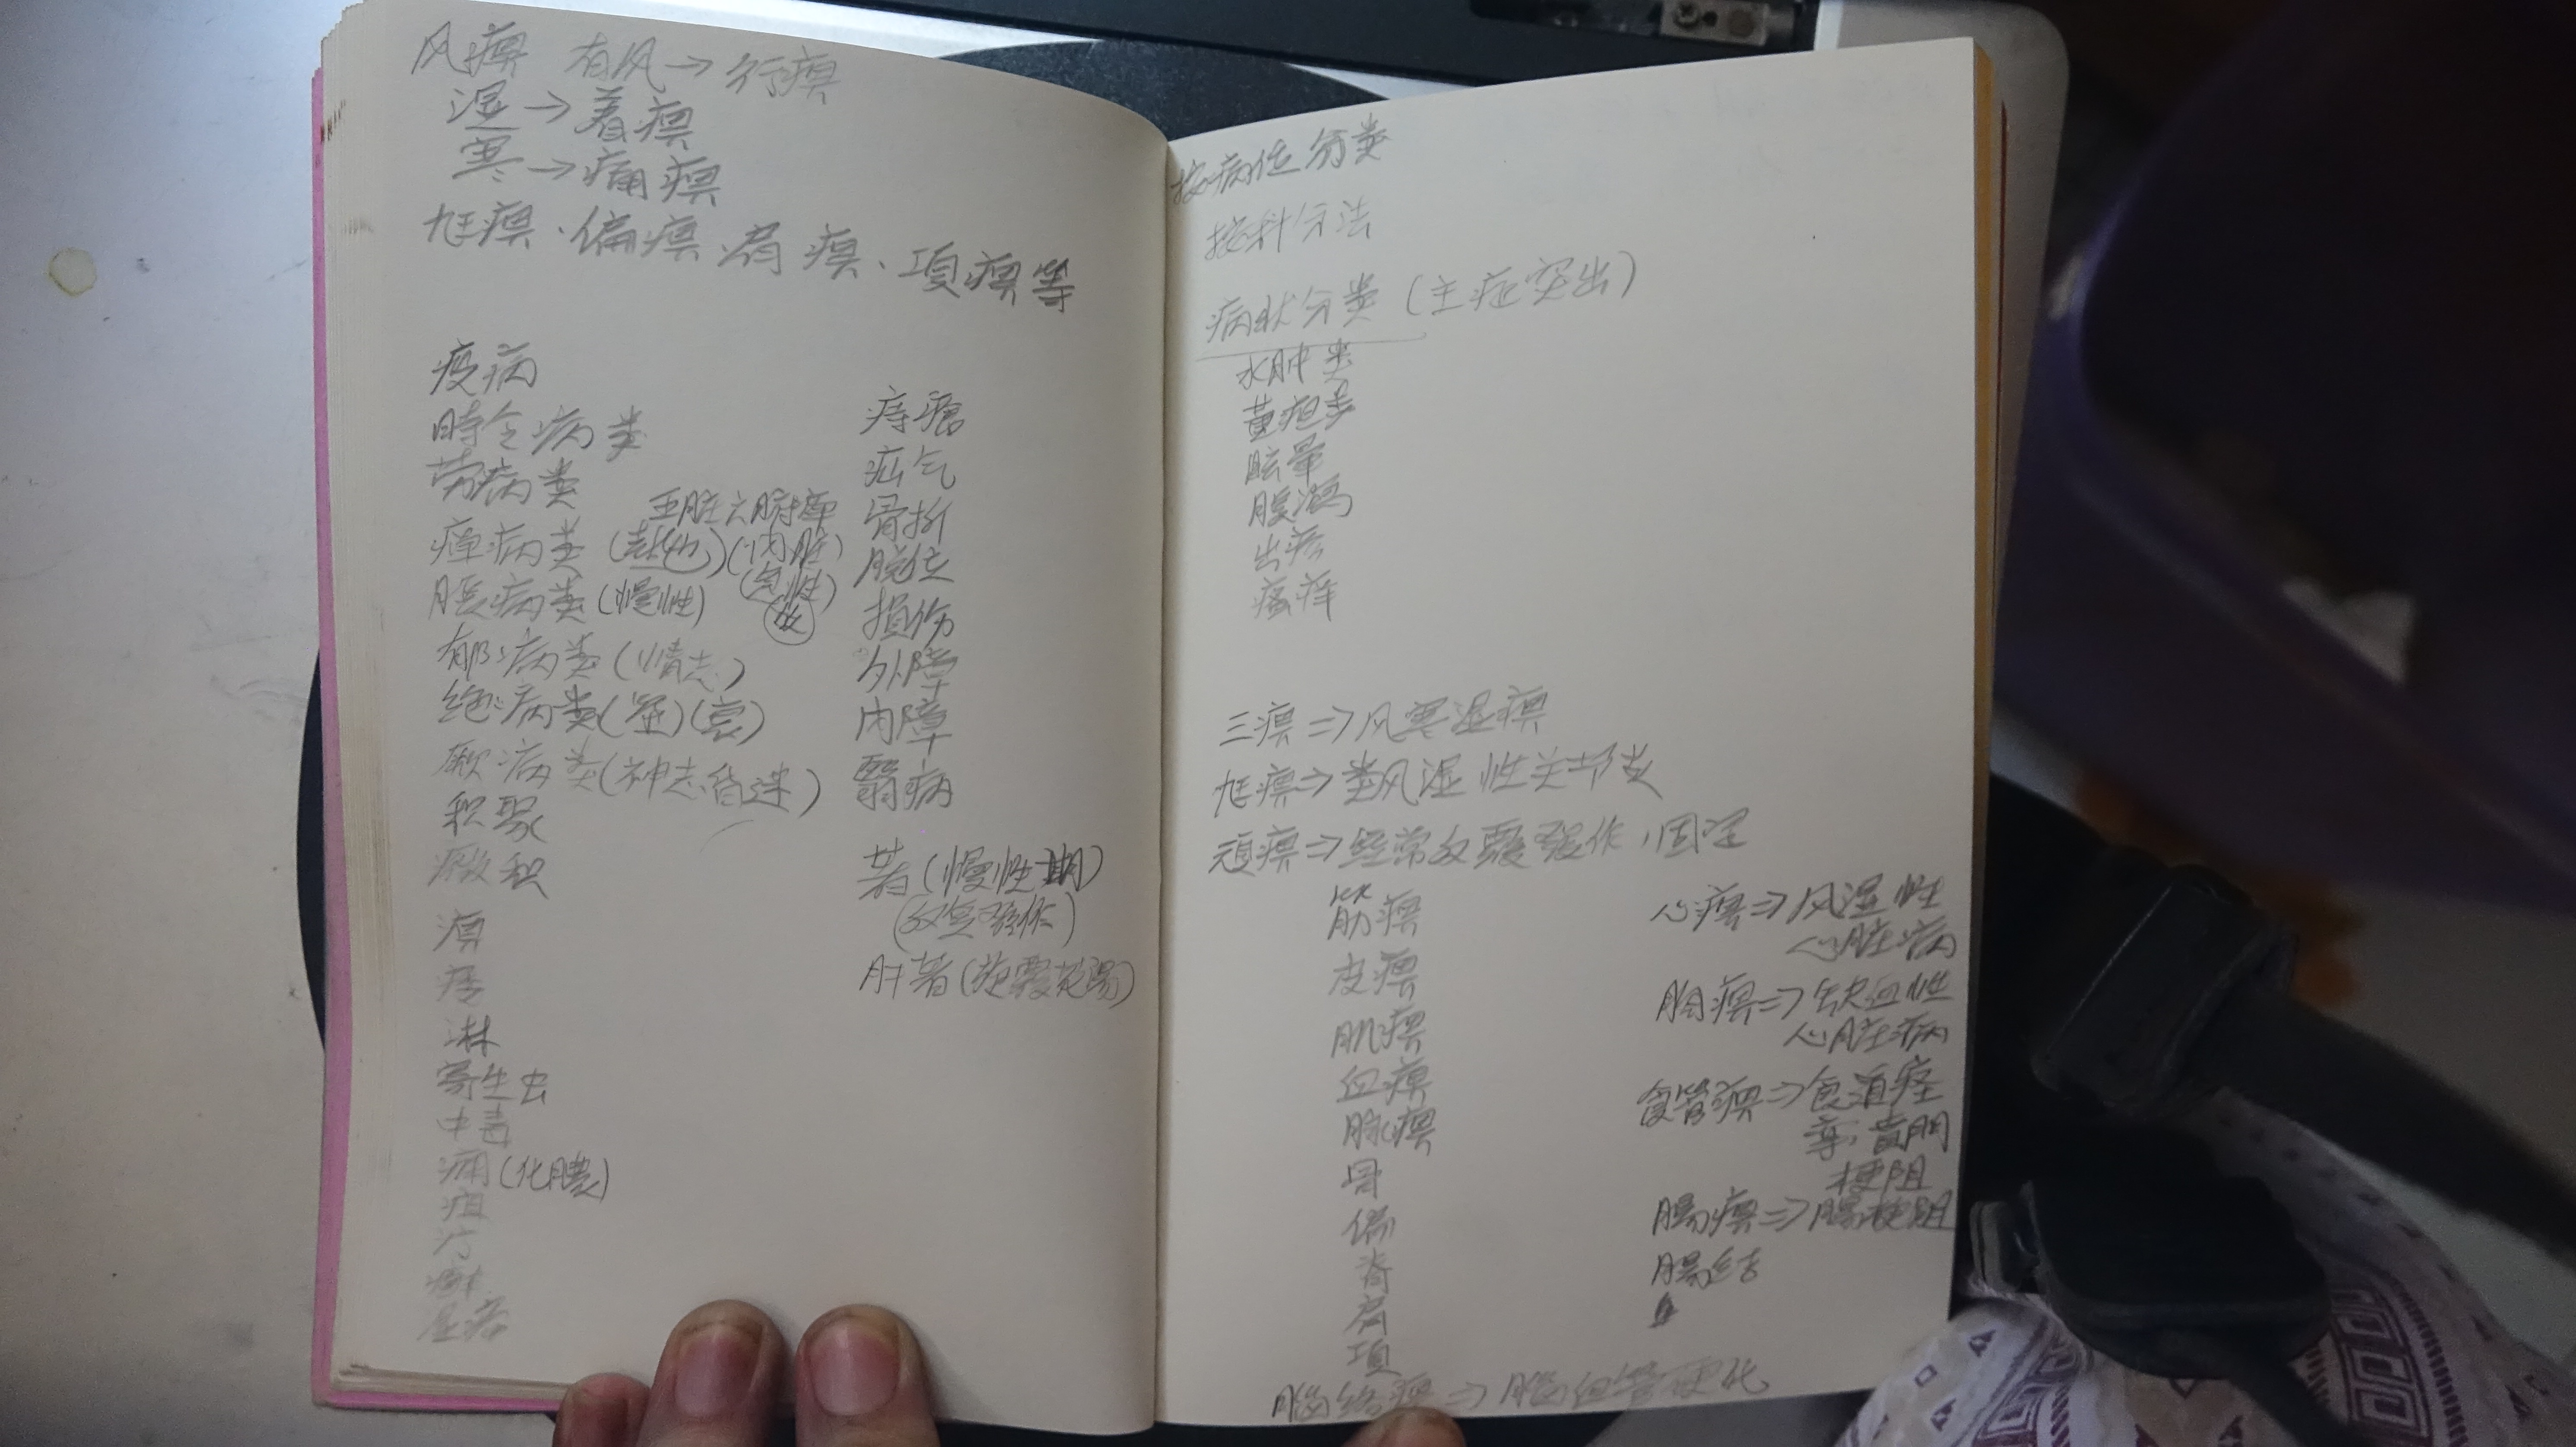 风痹 有风→行痹
湿→着痹
寒→痛痹
尪痹、偏痹、肩痹、项痹等
疫病
時令病类
劳病类
五脏六腑瘅
瘅病类(热也)(内脏)
(急性)
腹病类(慢性)
郁病类(情志)
绝病类(竭)(衰)
厥病类(神志昏迷)
积聚
癥积
淋
寄生虫
中毒
痈(化膿)
疽
疔
痔瘡
疝气
骨折
脱位
損伤
外障
内障
翳病
著(慢性期)
(反复发作)
肝著(旋覆花湯)
按病位分类
按科分法
病状分类(主症突出)
水肿类
黄疸类
眩暈
腹瀉
出疹
瘙痒
三痹⇒风寒湿痹
尪痹⇒类风湿性关节炎
頑痹⇒经常反覆發作,固定
筋痹
皮痹
肌痹
血痹
脉痹
骨
偏
脊
肩
项
脑络痹⇒脑血管硬化
心痹⇒风湿性
心脏病
胸痹⇒缺血性
心脏病
食管痹⇒食道痉
挛,賁門
梗阻
腸痹⇒腸梗阻
腸结